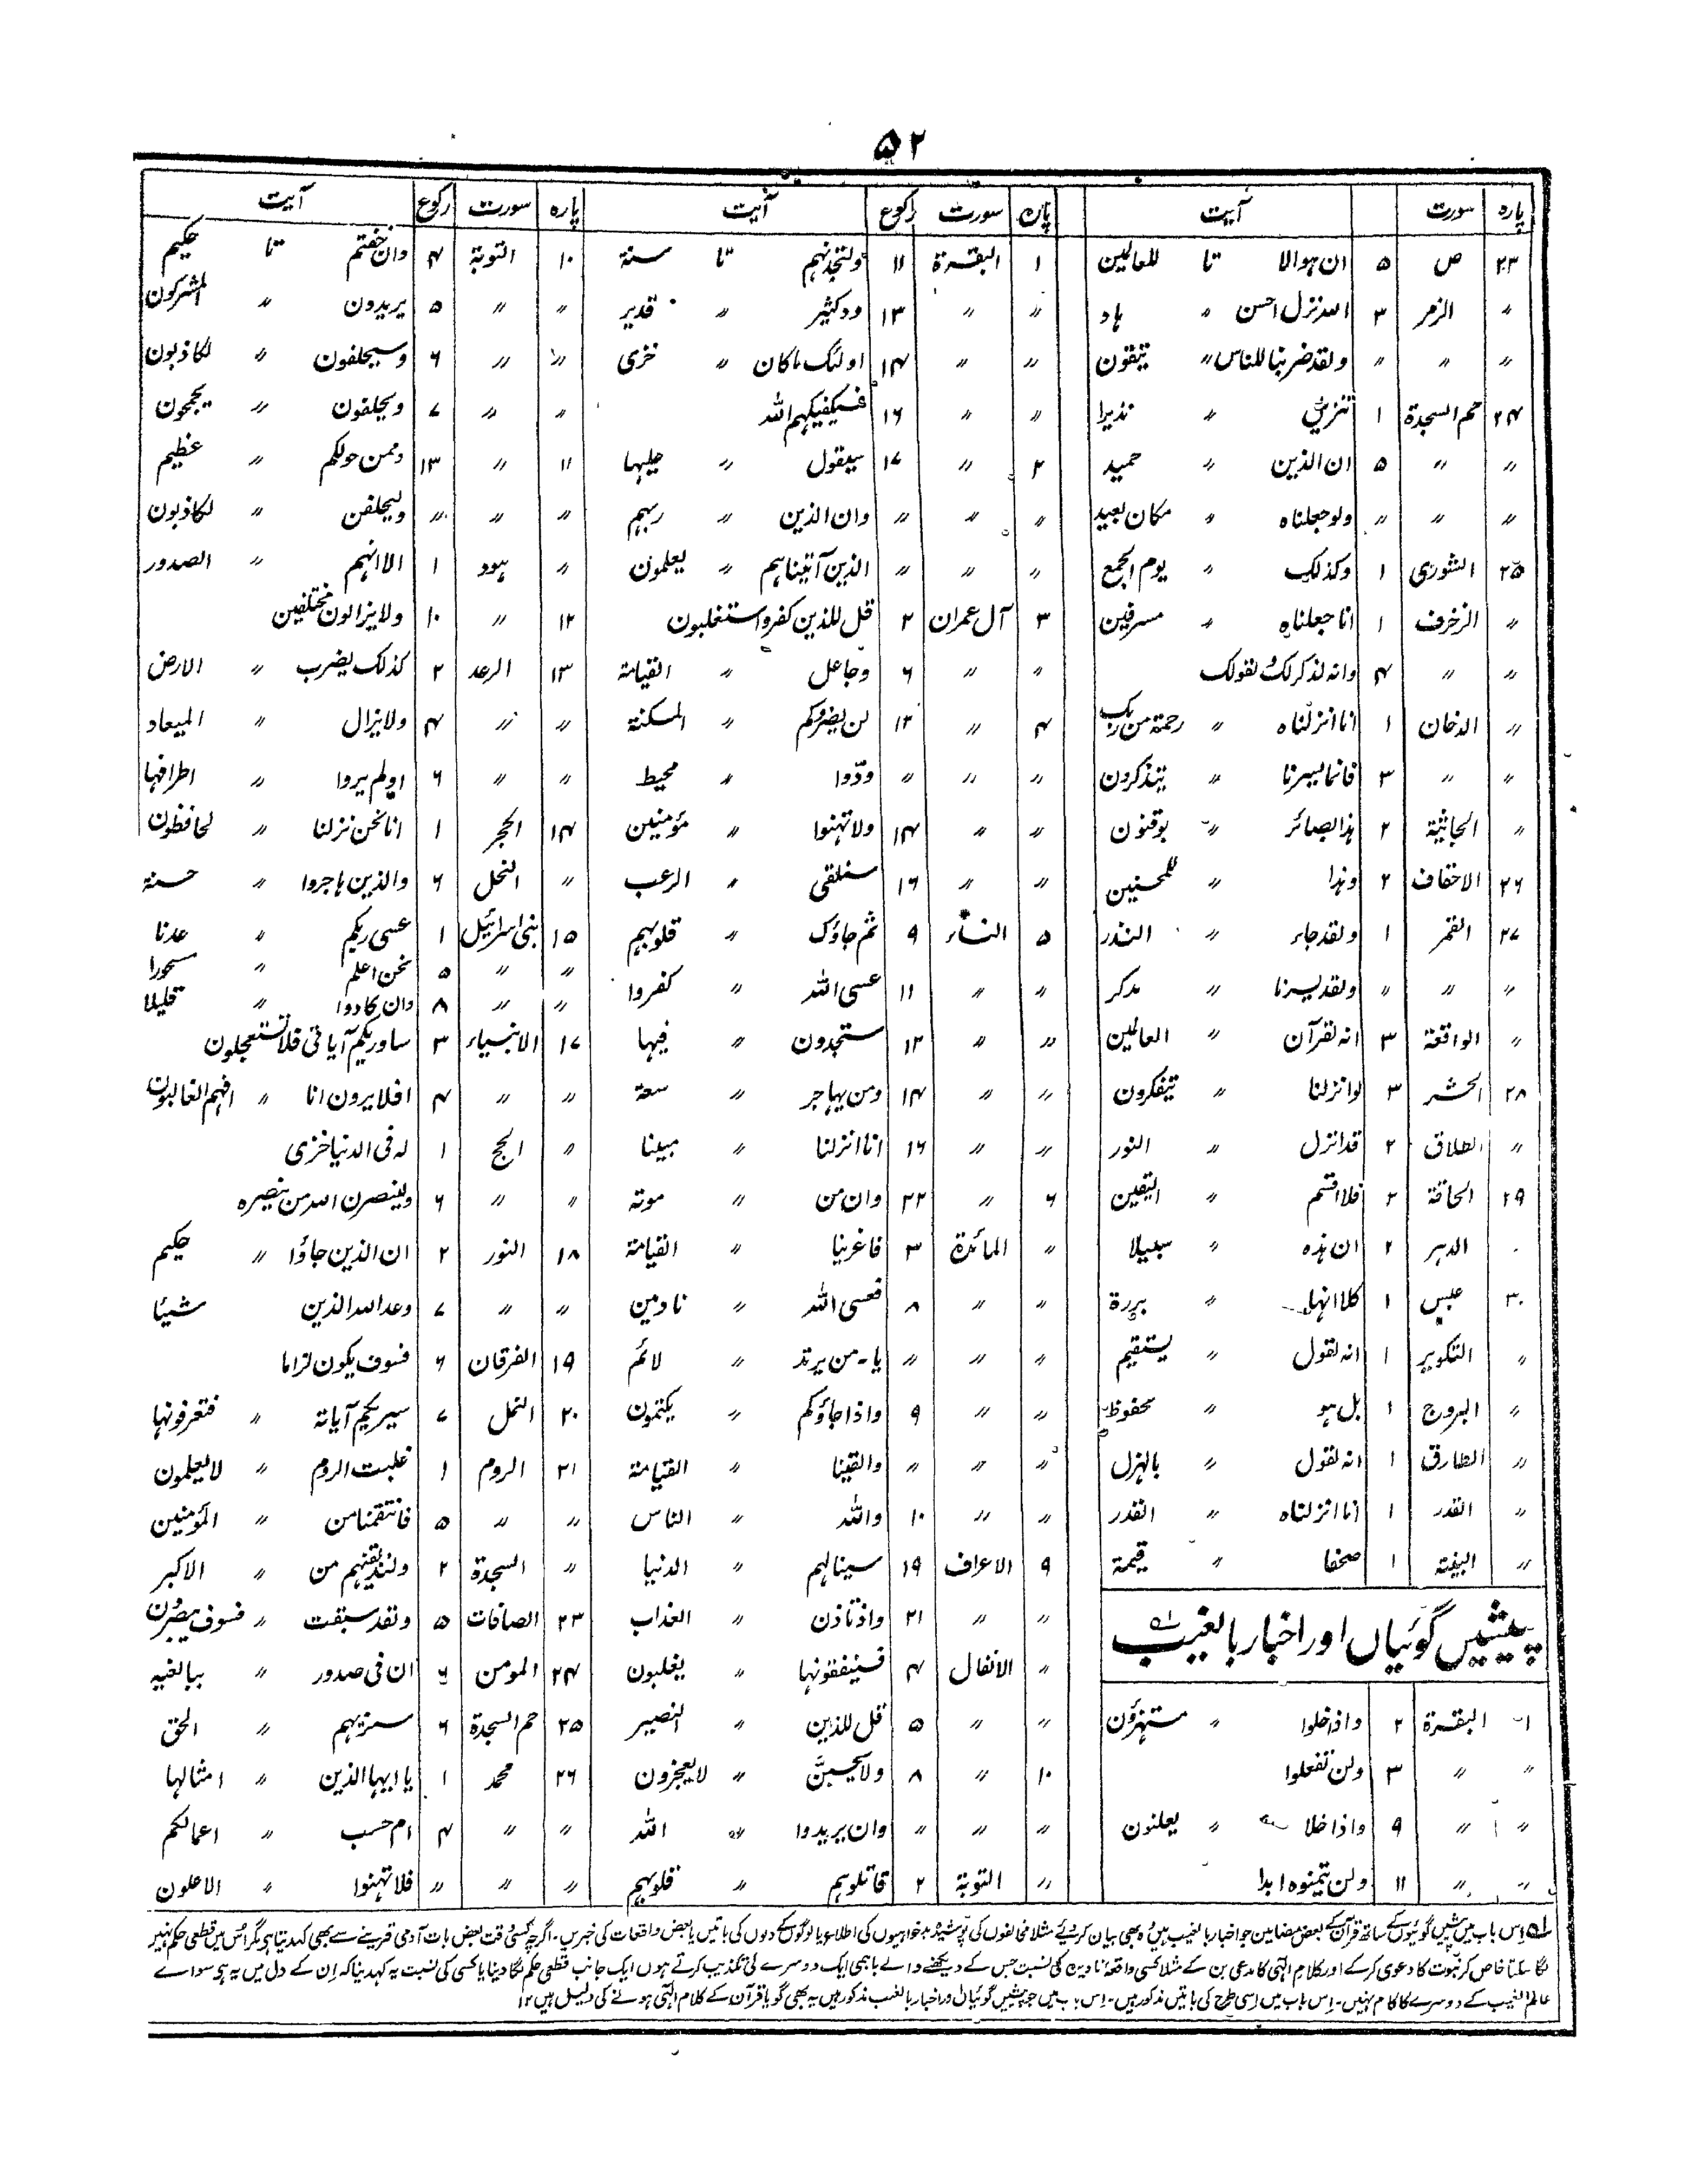 ۵۲
پارہ سورت آیت
۲۳ ص ۵ ان ہو الا تا للعالمین
〃 الزمر ۳ اللہ نزل احسن 〃 ہاد
〃 〃 〃 ولقد ضربنا للناس 〃 یتقون
۲۴ حم السجدۃ ۱ تنزیل 〃 نذیرا
〃 〃 ۵ ان الذین 〃 حمید
〃 〃 〃 ولو جعلناہ 〃 مکان بعید
۲۵ الشوریٰ ۱ وکذلک 〃 یوم الجمع
〃 الزخرف ۱ انا جعلناہ 〃 مسرفین
〃 〃 ۴ وانہ لذکر لک ولقومک
〃 الدخان ۱ انا انزلناہ 〃 رحمۃ من ربک
〃 〃 ۳ فانما یسرنا 〃 یتذکرون
〃 الجاثیۃ ۲ ہذا بصائر 〃 یوقنون
۲۶ الاحقاف ۲ وہذا 〃 للمحسنین
۲۷ القمر ۱ ولقد جاء 〃 النذر
〃 〃 〃 ولقد یسرنا 〃 مدکر
〃 الواقعۃ ۳ انہ لقرآن 〃 العالمین
۲۸ الحشر ۳ لو انزلنا 〃 یتفکرون
〃 الطلاق ۲ قد انزل 〃 النور
۲۹ الحاقۃ ۲ فلا اقسم 〃 الیقین
〃 الدہر ۲ ان ہذہ 〃 سبیلا
۳۰ عبس ۱ کلا انہا 〃 بررۃ
〃 التکویر ۱ انہ لقول 〃 یستقیم
〃 البروج ۱ بل ہو 〃 محفوظ
〃 الطارق ۱ انہ لقول 〃 بالہزل
〃 القدر ۱ انا انزلناہ 〃 القدر
〃 البینۃ ۱ صحفا 〃 قیمۃ
پیشیں گوئیاں اور اخبار بالغیب
۱ البقرۃ ۲ واذا خلوا 〃 مستہزؤن
〃 〃 ۳ ولن تفعلوا
〃 〃 ۹ واذا خلا 〃 یعلنون
〃 〃 ۱۱ ولن یتمنوہ ابدا
پارہ سورت رکوع آیت
۱ البقرۃ ۱۱ ولتجدنہم تا سنۃ
〃 〃 ۱۳ ودکثیر 〃 قدیر
〃 〃 ۱۴ اولئک ماکان 〃 خزی
〃 〃 ۱۶ فسیکفیکہم اللہ
۲ 〃 ۱۷ سیقول 〃 علیہا
〃 〃 〃 وان الذین 〃 ربہم
〃 〃 〃 الذین آتیناہم 〃 یعلمون
۳ آل عمران ۲ قل للذین کفروا ستغلبون
〃 〃 ۶ وجاعل 〃 القیامۃ
۴ 〃 ۱۲ لن یضروکم 〃 المسکنۃ
〃 〃 〃 ودّوا 〃 محیط
〃 〃 ۱۴ ولا تہنوا 〃 مؤمنین
〃 〃 ۱۶ سنلقی 〃 الرعب
۵ النساء ۹ ثم جاؤک 〃 قلوبہم
〃 〃 ۱۱ عسی اللہ 〃 کفروا
〃 〃 ۱۲ ستجدون 〃 فیہا
〃 〃 ۱۴ ومن یہاجر 〃 سعۃ
〃 〃 ۱۶ انا انزلنا 〃 مبینا
۶ 〃 ۲۲ وان من 〃 موتہ
〃 المائدۃ ۳ فاغرینا 〃 القیامۃ
〃 〃 ۸ فعسی اللہ 〃 نادمین
〃 〃 〃 یا۔ من یرتد 〃 لائم
〃 〃 ۹ واذا جاؤکم 〃 یکتمون
〃 〃 〃 والقینا 〃 القیامۃ
〃 〃 ۱۰ واللہ 〃 الناس
۹ الاعراف ۱۹ سینالہم 〃 الدنیا
〃 〃 ۲۱ واذ تاذن 〃 العذاب
〃 الانفال ۴ فسینفقونہا 〃 یغلبون
〃 〃 ۵ قل للذین 〃 النصیر
۱۰ 〃 ۸ ولا یحسبنَّ 〃 لا یعجزون
〃 〃 〃 وان یریدوا 〃 اللہ
〃 التوبۃ ۲ قاتلوہم 〃 قلوبہم
پارہ سورت رکوع آیت
۱۰ التوبۃ ۴ وان خفتم تا حکیم
〃 〃 ۵ یریدون 〃 المشرکون
〃 〃 ۶ وسیحلفون 〃 لکاذبون
〃 〃 ۷ ویحلفون 〃 یجمحون
۱۱ 〃 ۱۳ وممن حولکم 〃 عظیم
〃 〃 〃 ولیحلفن 〃 لکاذبون
〃 ہود ۱ الا انہم 〃 الصدور
۱۲ 〃 ۱۰ ولا یزالون مختلفین
۱۳ الرعد ۲ کذلک یضرب 〃 الارض
〃 〃 ۴ ولا یزال 〃 المیعاد
〃 〃 ۶ اولم یروا 〃 اطرافہا
۱۴ الحجر ۱ انا نحن نزلنا 〃 لحافظون
〃 النحل ۶ والذین ہاجروا 〃 حسنۃ
۱۵ بنی اسرائیل ۱ عسی ربکم 〃 عدنا
〃 〃 ۵ نحن اعلم 〃 مسحورا
〃 〃 ۸ وان کادوا 〃 قلیلا
۱۷ الانبیاء ۳ ساوریکم آیاتی فلا تستعجلون
〃 〃 ۴ افلا یرون انا 〃 افہم الغالبون
〃 الحج ۱ لہ فی الدنیا خزی
〃 〃 ۶ ولینصرن اللہ من ینصرہ
۱۸ النور ۲ ان الذین جاؤا 〃 حکیم
〃 〃 ۷ وعد اللہ الذین شیئا
۱۹ الفرقان ۶ فسوف یکون لزاما
۲۰ النمل ۷ سیریکم آیاتہ 〃 فتعرفونہا
۲۱ الروم ۱ غلبت الروم 〃 لا یعلمون
〃 〃 ۵ فانتقمنا من 〃 المؤمنین
〃 السجدۃ ۲ ولنذیقنہم من 〃 الاکبر
۲۳ الصافات ۵ ولقد سبقت 〃 فسوف یبصرون
۲۴ المومن ۶ ان فی صدور 〃 ببالغیہ
۲۵ حم السجدۃ ۶ سنریہم 〃 الحق
۲۶ محمد ۱ یا ایہا الذین 〃 امثالہا
〃 〃 ۴ ام حسب 〃 اعمالکم
〃 〃 〃 فلا تہنوا 〃 الاعلون
۱؎ اس باب میں پیشیں گوئیوں کے ساتھ قرآن کے بعض مضامین جو اخبار بالغیب ہیں وہ بھی بیان کر دئیے مثلا مخالفوں کی پوشیدہ بدخواہیوں کی اطلاع یا لوگوں کے دلوں کی باتیں یا بعض واقعات کی خبریں۔ اگرچہ کسی وقت بعض بات آدمی قرینے سے بھی کہہ دیتا ہے مگر اس میں قطعی حکم نہیں
لگا سکتا خاص کر نبوت کا دعوی کرکے اور کلام الٰہی کا مدعی بن کے مثلا کسی واقعہ کی نسبت جس کے دیکھنے والے باہمی ایک دوسرے کی تکذیب کرتے ہوں ایک جانب قطعی حکم لگا دینا یا کسی کی نسبت یہ کہہ دینا کہ اِن کے دل میں یہ ہے سواے
عالم الغیب کے دوسرے کا کام نہیں۔ اِس باب میں اِسی طرح کی باتیں مذکور ہیں۔ اِس باب میں جو پیشیں گوئیاں اور اخبار بالغیب مذکور ہیں یہ بھی گویا قرآن کے کلام الٰہی ہونے کی دلیل ہیں ۱۲